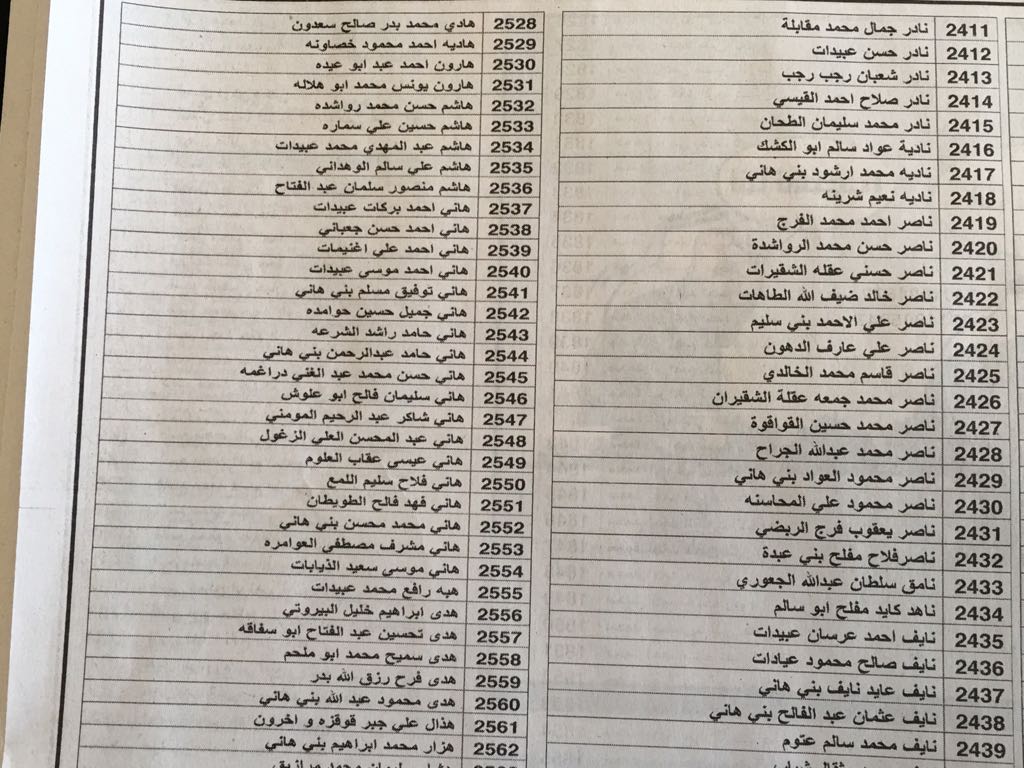 2411 نادر جمال محمد مقابلة
2412 نادر حسن عبيدات
2413 نادر شعبان رجب رجب
2414 نادر صلاح احمد القيسي
2415 نادر محمد سليمان الطحان
2416 نادية عواد سالم ابو الكشك
2417 ناديه محمد ارشود بني هاني
2418 ناديه نعيم شرينه
2419 ناصر احمد محمد الفرج
2420 ناصر حسن محمد الرواشدة
2421 ناصر حسني عقله الشقيرات
2422 ناصر خالد ضيف الله الطاهات
2423 ناصر علي الاحمد بني سليم
2424 ناصر علي عارف الدهون
2425 ناصر قاسم محمد الخالدي
2426 ناصر محمد جمعه عقلة الشقيران
2427 ناصر محمد حسين القواقوة
2428 ناصر محمد عبدالله الجراح
2429 ناصر محمود العواد بني هاني
2430 ناصر محمود علي المحاسنه
2431 ناصر يعقوب فرج الربضي
2432 ناصرفلاح مفلح بني عبدة
2433 نامق سلطان عبدالله الجعوري
2434 ناهد كايد مفلح ابو سالم
2435 نايف احمد عرسان عبيدات
2436 نايف صالح محمود عيادات
2437 نايف عايد نايف بني هاني
2438 نايف عثمان عبد الفالح بني هاني
2439 نايف محمد سالم عتوم
2528 هادي محمد بدر صالح سعدون
2529 هاديه احمد محمود خصاونه
2530 هارون احمد عبد ابو عيده
2531 هارون يونس محمد ابو هلاله
2532 هاشم حسن محمد رواشده
2533 هاشم حسين علي سماره
2534 هاشم عبد المهدي محمد عبيدات
2535 هاشم علي سالم الوهداني
2536 هاشم منصور سلمان عبد الفتاح
2537 هاني احمد بركات عبيدات
2538 هاني احمد حسن جعباني
2539 هاني احمد علي اغنيمات
2540 هاني احمد موسى عبيدات
2541 هاني توفيق مسلم بني هاني
2542 هاني جميل حسين حوامده
2543 هاني حامد راشد الشرعه
2544 هاني حامد عبدالرحمن بني هاني
2545 هاني حسن محمد عبد الغني دراغمه
2546 هاني سليمان فالح ابو علوش
2547 هاني شاكر عبد الرحيم المومني
2548 هاني عبد المحسن العلي الزغول
2549 هاني عيسى عقاب العلوم
2550 هاني فلاح سليم اللمع
2551 هاني فهد فالح الطويطان
2552 هاني محمد محسن بني هاني
2553 هاني مشرف مصطفى العوامره
2554 هاني موسى سعيد الذيابات
2555 هبه رافع محمد عبيدات
2556 هدى ابراهيم خليل البيروتي
2557 هدى تحسين عبد الفتاح ابو سفاقه
2558 هدى سميح محمد ابو ملحم
2559 هدى فرح رزق الله بدر
2560 هدى محمود عبد الله بني هاني
2561 هذال علي جبر قوقزه و اخرون
2562 هزار محمد ابراهيم بني هاني